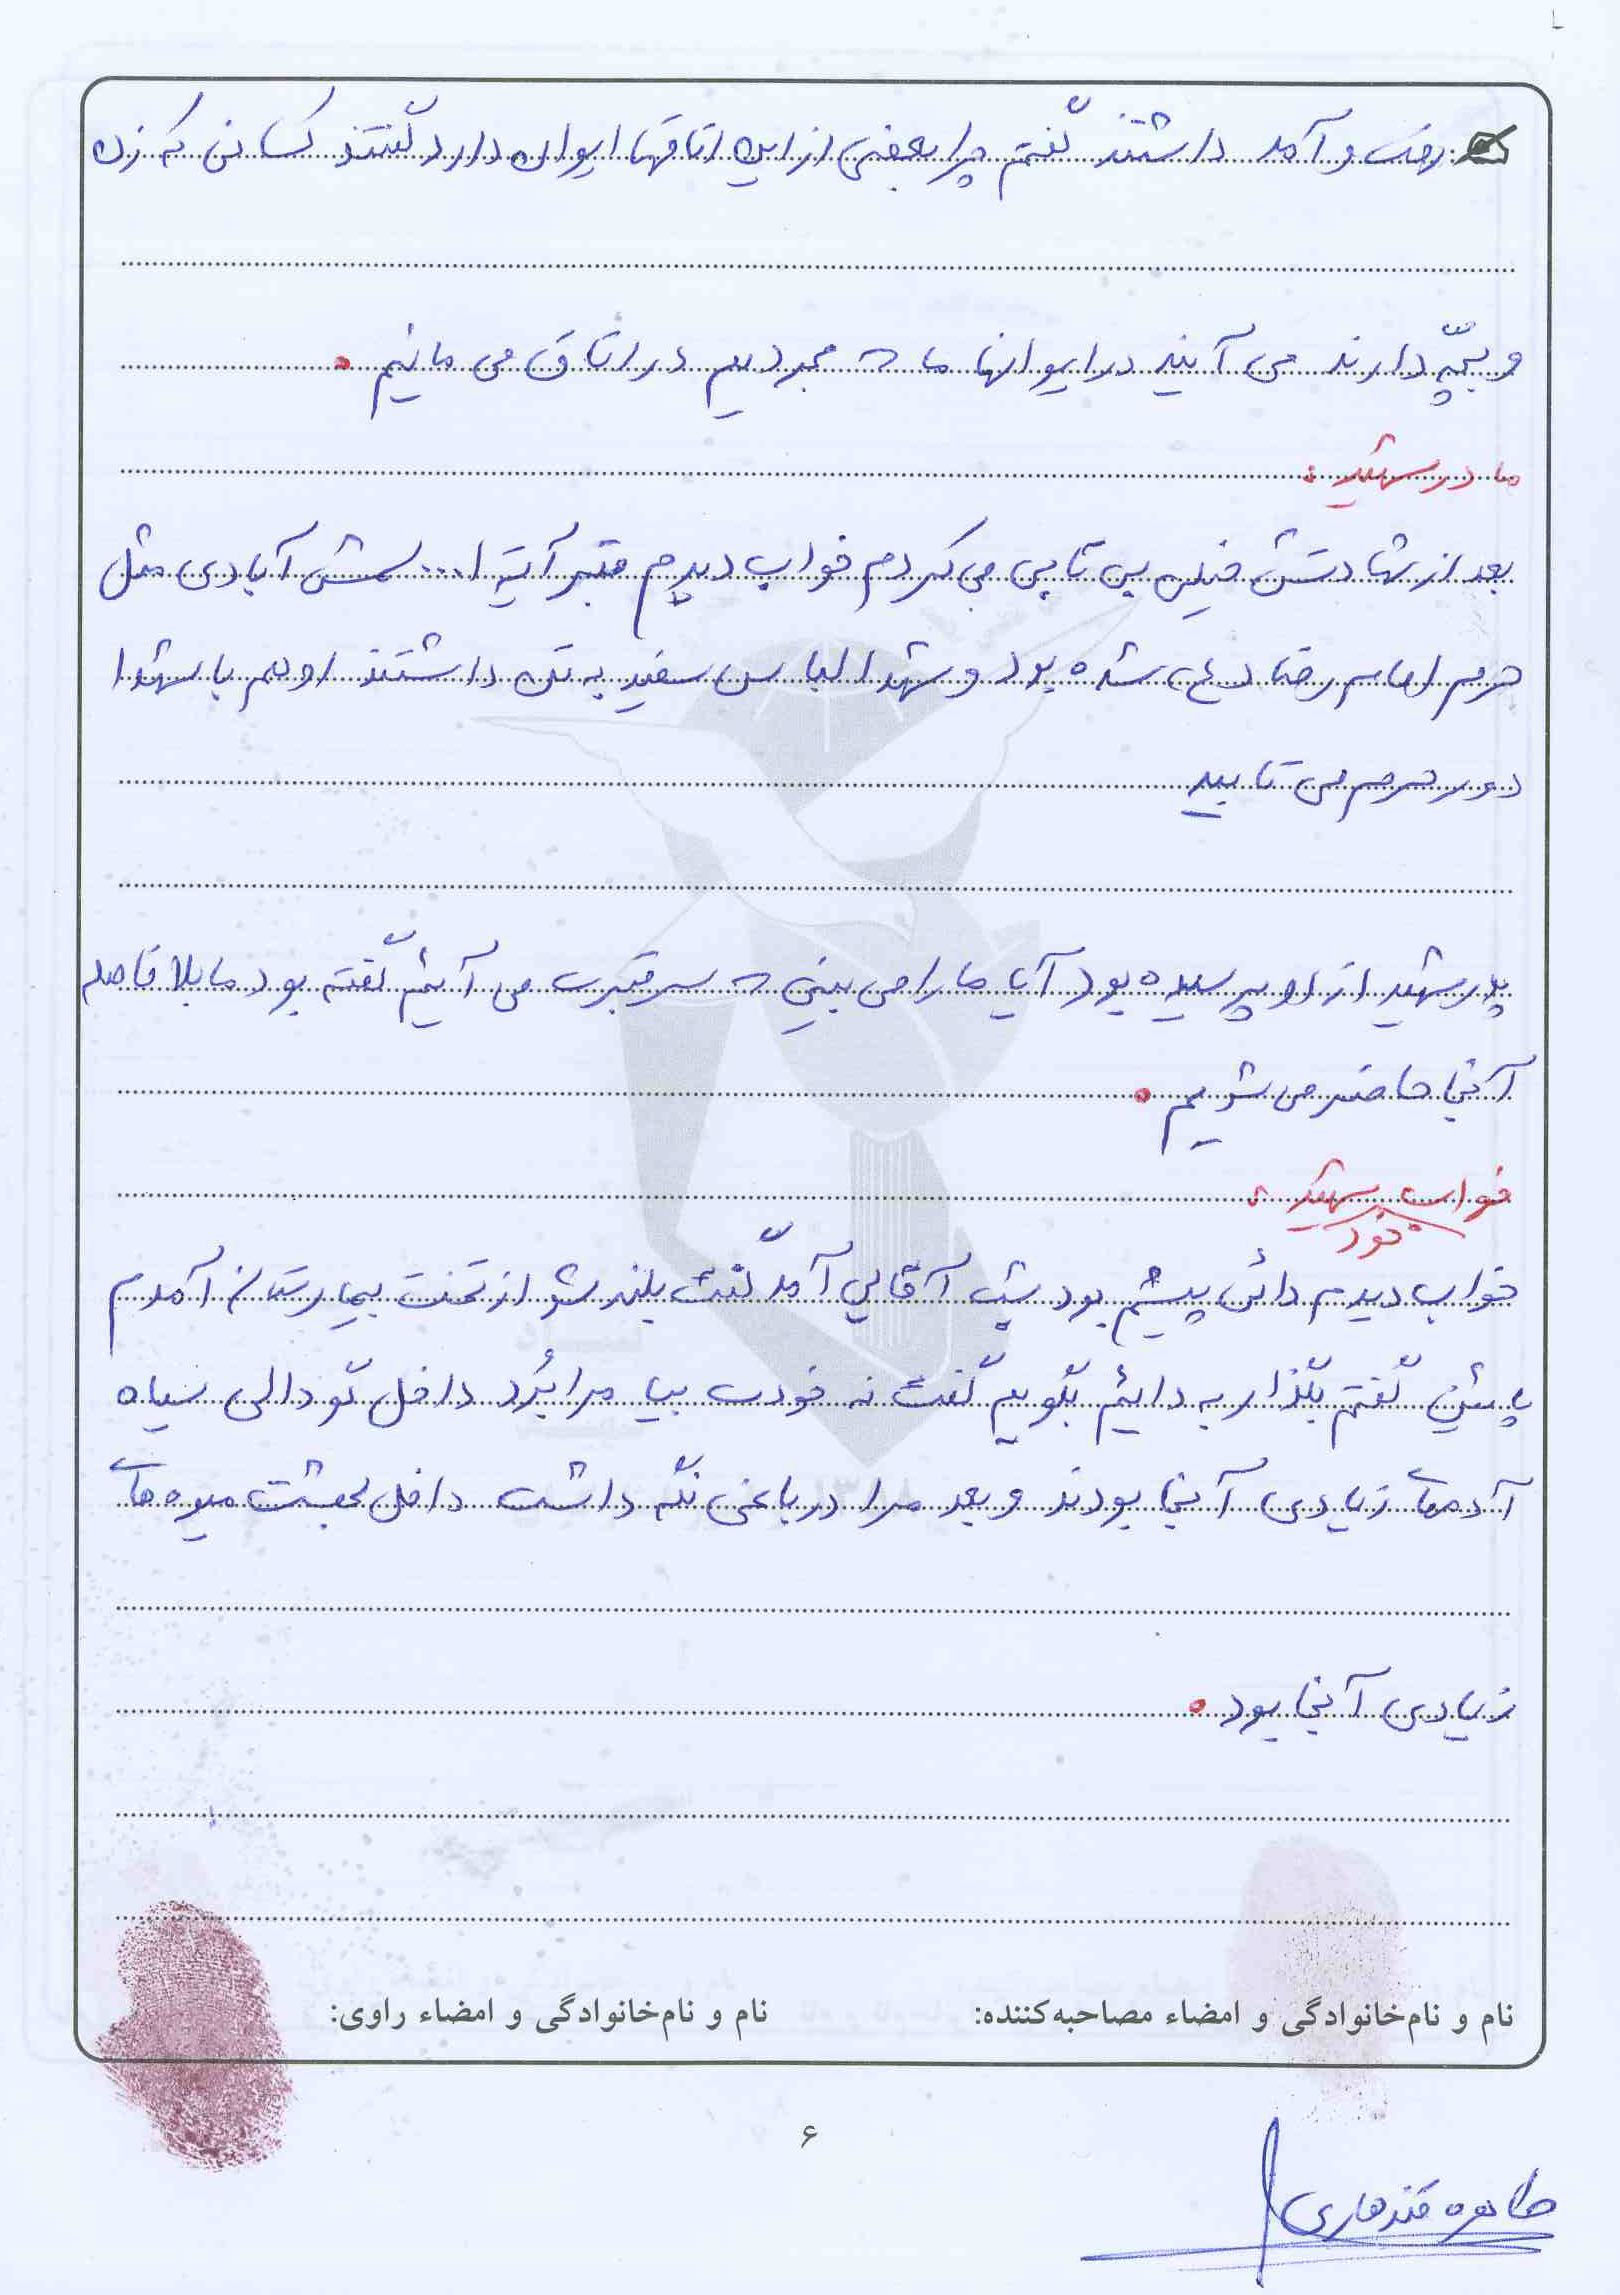 رفت و آمد داشتند گفتم چرا بعضی از این اتاقها ایوان دارد گفتند کسانی که زن
و بچّه دارند می آیند در ایوانها ما که مجردیم در اتاق می مانیم.
مادر شهید:
بعد از شهادتش خیلی بی تابی می کردم خواب دیدم قبر آیت ا... شمس آبادی مثل
حرم امام رضا (ع) شده بود و شهدا لباس سفید به تن داشتند او هم با شهدا
دور حرم می تابید
پدر شهید از او پرسیده بود آیا ما را می بینی که سر قبرت می آئیم گفته بود ما بلافاصله
آنجا حاضر می شویم.
خواب شهید:
خود
خواب دیدم دائی پیشم بود شب آقایی آمد گفت بلند شو از تخت بیمارستان آمدم
پائین گفتم بگذار به دائیم بگویم گفت نه خودت بیا مرا بُرد داخل گودالی سیاه
آدمهای زیادی آنجا بودند و بعد مرا در باغی نگه داشت داخل بهشت میوه های
زیادی آنجا بود.
۱۳۸۸
نام و نام‌خانوادگی و امضاء مصاحبه‌کننده: نام و نام‌خانوادگی و امضاء راوی:
۶
طاهره قندهاری